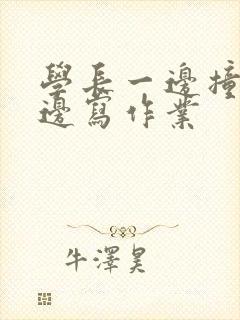 學長一邊撞
邊寫作業
牛澤昊